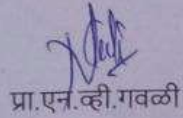 प्रा.एन.व्ही.गवळी